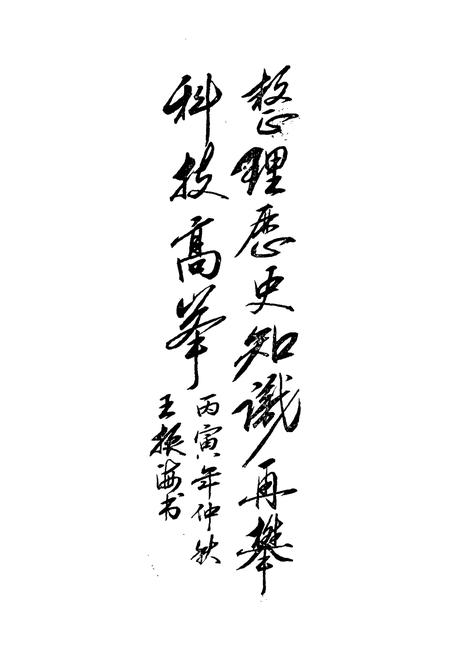 整理歷史知識再攀
科技高峯
丙寅年仲秋
王振海书